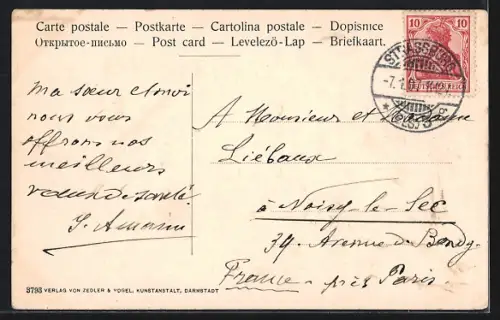 Carte postale – Postkarte – Cartolina postale – Dopisnice
Открытое-письмо – Post card – Levelező-Lap – Briefkaart.
10 10
DEUTSCHES REICH
STRASSBURG
-7.1.
(ELS)
Ma sœur et moi
nous vous
offrons nos
meilleurs
vœux de santé.
A Monsieur et Madame
Liébaux
à Noisy-le-Sec
34 Avenue de Bondy.
France – près Paris.
3793 VERLAG VON ZEDLER & VOGEL, KUNSTANSTALT, DARMSTADT